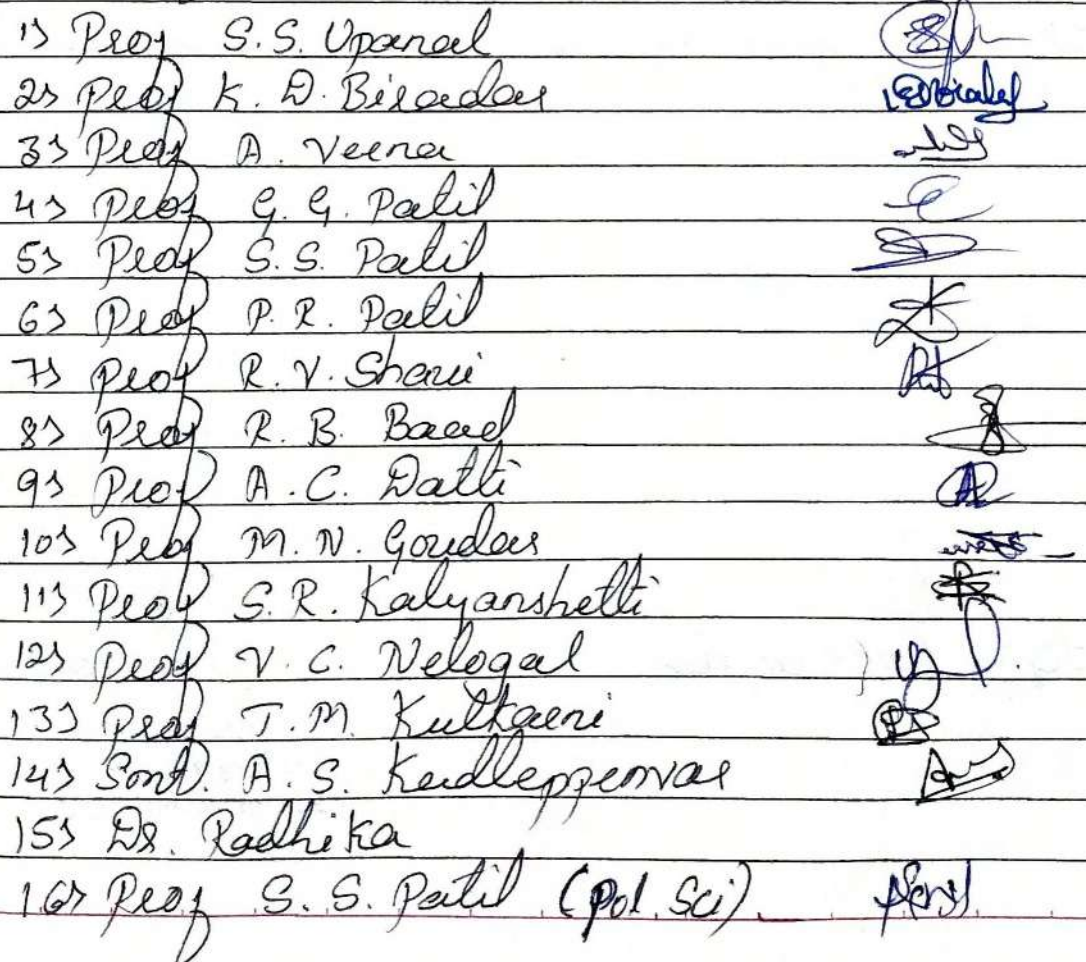 1) Prof S.S. Upanal
2) Prof K. D. Biradar
3) Prof A. Veena
4) Prof G. G. Patil
5) Prof S.S. Patil
6) Prof P. R. Patil
7) Prof R. V. Shari
8) Prof R. B. Baad
9) Prof A. C. Datti
10) Prof M. N. Goudar
11) Prof S. R. Kalyanshetti
12) Prof V. C. Nelogal
13) Prof T. M. Kulkarni
14) Smt. A. S.
15) Dr. Radhika
16) Prof S. S. Patil (Pol. Sci)